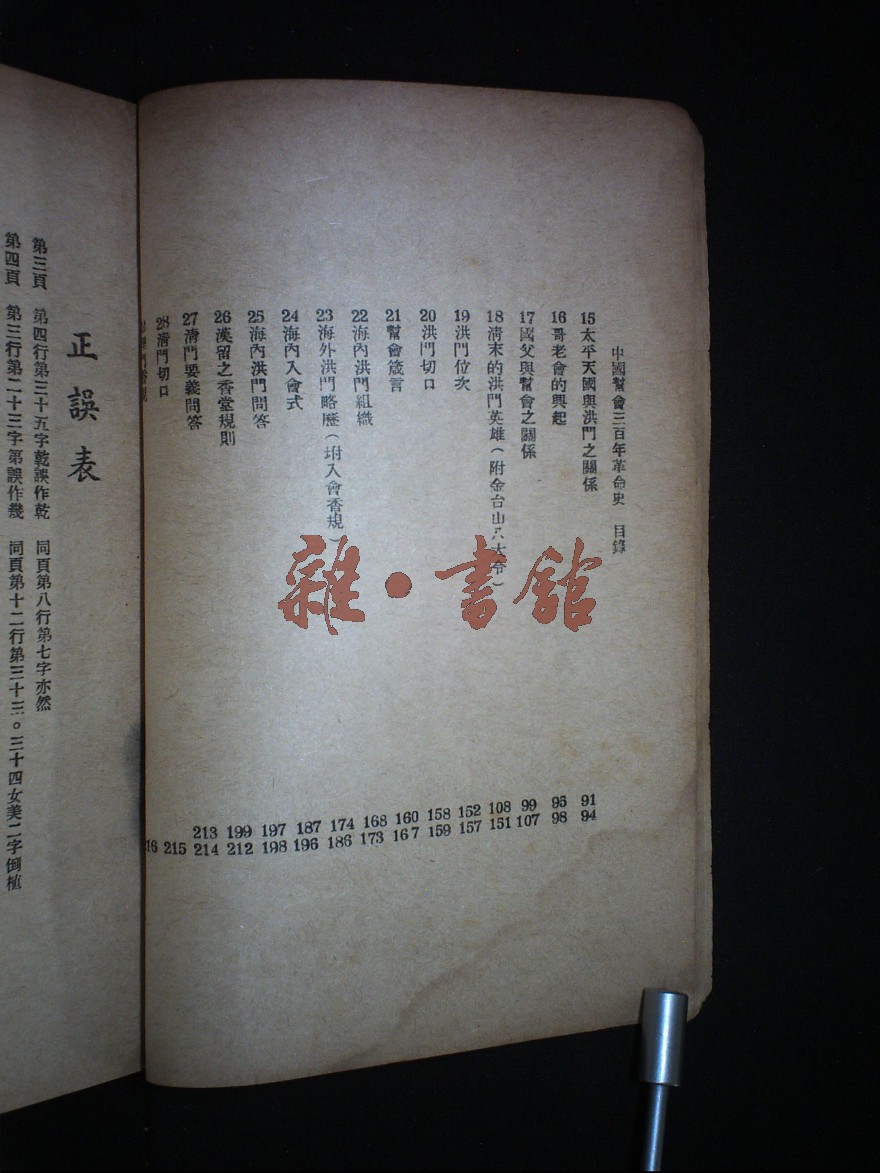 中國幫會三百年革命史　目錄
15太平天國與洪門之關係　91 94
16哥老會的興起　95 98
17國父與幫會之關係　99 107
18清末的洪門英雄（附金台山八大令）　108 151
19洪門位次　152 157
20洪門切口　158 159
21幫會箴言　160 167
22海內洪門組織　168 173
23海外洪門略歷（坿入會香規）　174 186
24海內入會式　187 196
25海內洪門問答　197 198
26漢留之香堂規則　199 212
27清門要義問答　213 214
28清門切口　215
16
正誤表
第三頁　第四行第三十五字乾誤作乾　同頁第八行第七字亦然
第四頁　第三行第二十三字第誤作幾　同頁第十二行第三十三。三十四女美二字倒植
雜·書館